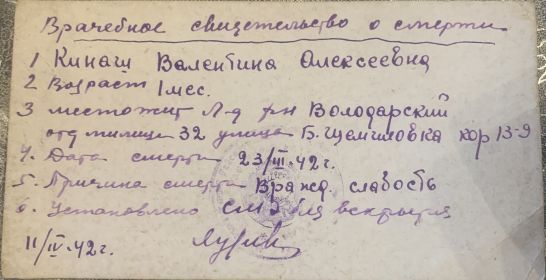 Врачебное свидетельство о смерти
1 Кинаш Валентина Алексеевна
2 Возраст 1 мес.
3 местожит Л-д р-н Володарский
отд милиции 32 улица Б. Щемиловка кор 13-9
4. Дата смерти 23/III-42 г.
5. Причина смерти Врожд. слабость
6. Установлено СМЭ без вскрытия
11/IV-42 г.